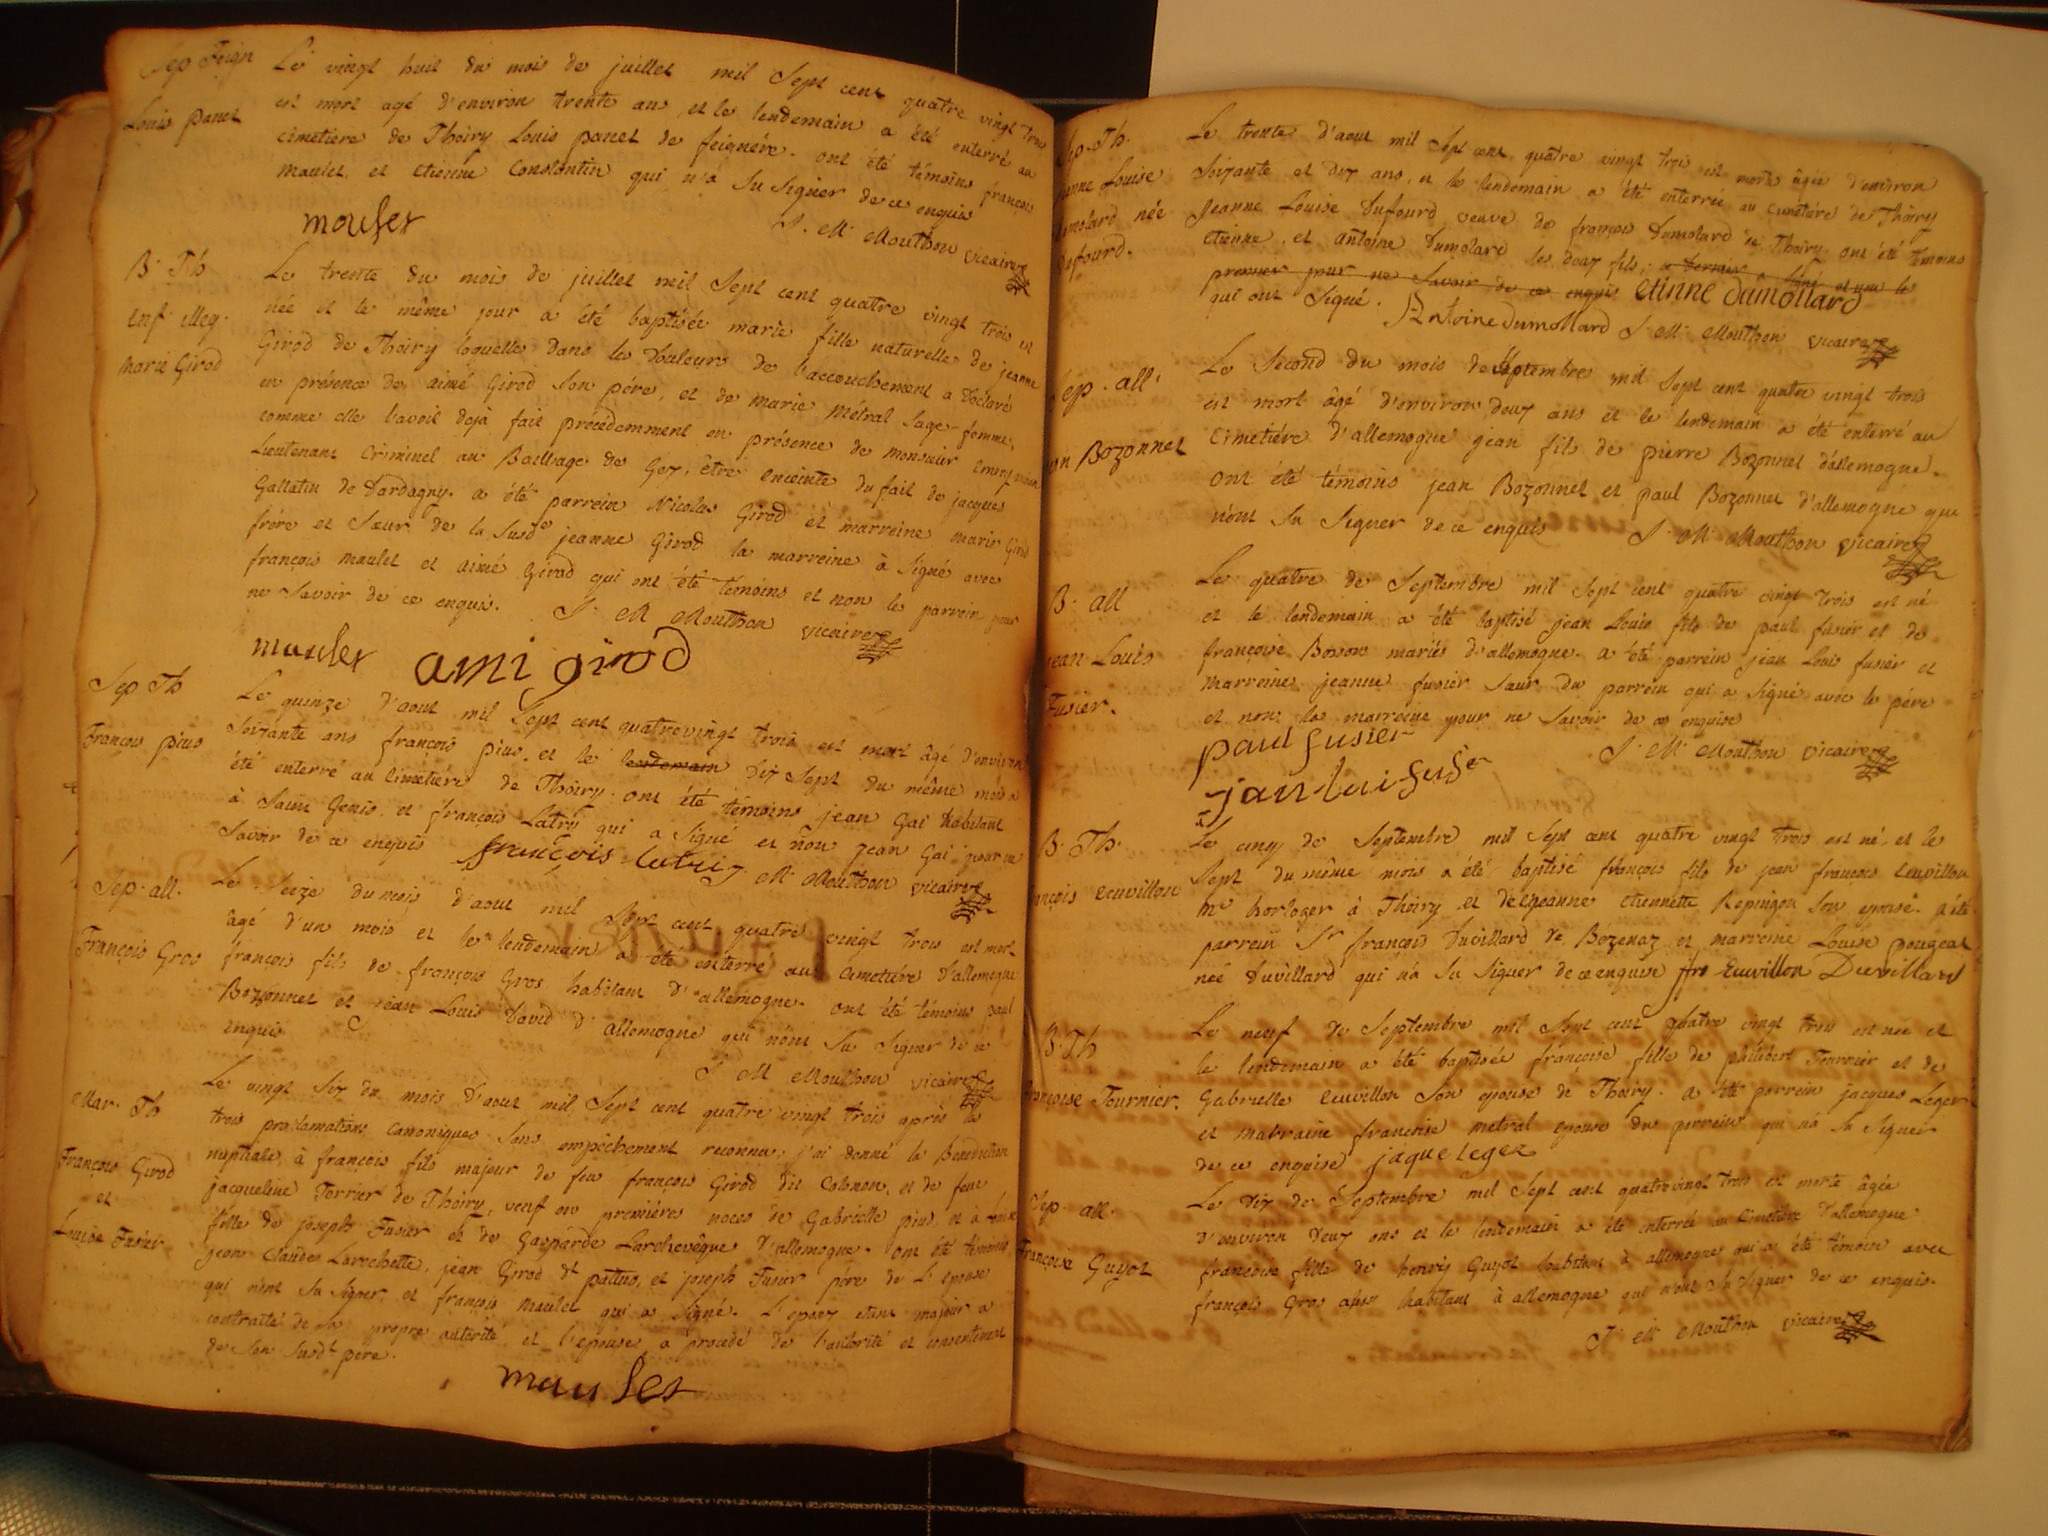 Sep Feign
Louis panet
Le vingt huit du mois de juillet mil Sept cent quatre vingt trois
est mort agé d'environ trente ans, et le lendemain a été enterré au
cimetiere de Thoiry Louis panet de feignére. ont été témoins françois
maulet, et etienne Constantin qui n'a Su Signer de ce enquis
maulet
J. M. Mouthon vicaire
B. Th
enf. illeg.
Marie Girod
Le trente du mois de juillet mil Sept cent quatre vingt trois est
née et le même jour a été baptisée marie fille naturelle de jeanne
Girod de Thoiry laquelle dans les Douleurs de l'accouchement a Déclaré
en présence de aimé Girod Son pére, et de marie Métral Sage-femme,
comme elle l'avoit dejà fait précédemment en présence de monsieur
Lieutenant Criminel au Bailliage de Gex, être enceinte du fait de jacques
Gallatin de Dardagny. a été parrein Nicolas Girod et marreine marie Girod
frére et Sœur de la Susde jeanne Girod la marreine à Signé avec
françois maulet et aimé Girod qui ont été témoins et non le parrein pour
ne Savoir de ce enquis. J. M Mouthon vicaire
maulet ami girod
Sep Th
François pius
Le quinze d'aout mil Sept cent quatrevingt trois est mort âgé d'environ
Soixante ans françois pius, et le lendemain dix Sept du même mois a
été enterré au Cimetiére de Thoiry. ont été témoins jean Gai habitant
à Saint Genis, et françois Latry qui a Signé et non jean Gai pour ne
Savoir de ce enquis françois latri J. M. Mouthon vicaire
Sep. all.
François Gros
Le Seize du mois d'aout mil Sept cent quatre vingt trois est mort
âgé d'un mois et le lendemain a été enterré au Cimetiére d'allemogne
françois fils de françois Gros habitant d'allemogne. ont été témoins paul
Bozonnet et jean Louis David d'allemogne qui n'ont Su Signer de ce
enquis
J M Mouthon vicaire
Mar. Th
François Girod
et
Louise Fusier
Le vingt Six du mois d'aout mil Sept cent quatre vingt trois après les
trois proclamations canoniques Sans empêchement reconnu, j'ai donné la Benediction
nuptiale à françois fils majeur de feu françois Girod dit Colonon, et de feue
jacqueline Terrier de Thoiry, veuf en premières noces de Gabrielle pius, et à Louise
fille de joseph Fusier et de Gasparde Larchevêque d'allemogne. ont été témoins
jean Claude Larochette, jean Girod dt pattus, et joseph Fusier pére de L'epouse
qui n'ont Su Signer, et françois Maulet qui a Signé. L'epoux etant majeur a
contracté de Sa propre autorité, et l'epouse a procédé de l'autorité et consentement
de Son Susdt pere.
maulet
Sep. Th.
jeanne Louise
Dumolard née
Dufourd.
Le trente d'aout mil Sept cent quatre vingt trois est morte âgée d'environ
Soixante et dix ans, et le lendemain a été enterrée au cimetiére de Thoiry
jeanne Louise Dufourd veuve de françois Dumolard de Thoiry. ont été témoins
etienne, et antoine Dumolard les deux fils, ce dernier a Signé et non le
premier pour ne Savoir de ce enquis etinne dumollard
qui ont Signé. Antoine Dumollard J M Mouthon vicaire
Sep. all.
jean Bozonnet
Le Second du mois de Septembre mil Sept cent quatre vingt trois
est mort âgé d'environ deux ans et le lendemain a été enterré au
Cimetiére d'allemogne jean fils de pierre Bozonnet d'allemogne.
ont été témoins jean Bozonnet et paul Bozonnet d'allemogne qui
n'ont Su Signer de ce enquis J. M. Mouthon vicaire
B. all
jean Louis
Fusier.
Le quatre de Septembre mil Sept cent quatre vingt trois est né
et le lendemain a été baptisé jean Louis fils de paul fusier et de
françoise Bosson mariés d'allemogne. a été parrein jean Louis fusier et
marreine jeanne fusier Sœur du parrein qui a Signé avec le pére
et non la marreine pour ne Savoir de ce enquise
paul fusier J. M. Mouthon vicaire
jan lui fusier
B. Th.
françois Cuvillon
Le cinq de Septembre mil Sept cent quatre vingt trois est né, et le
Sept du même mois a été baptisé françois fils de jean françois Cuvillon
Me horloger à Thoiry et de jeanne etiennette Repingon Son epouse. a été
parrein Sr françois Duvillard de Bozenaz et marreine Louise pougeat
née Duvillard qui n'a Su Signer de ce enquise jfs Cuvillon Duvillard
B. Th
françoise Tournier.
Le neuf de Septembre mil Sept cent quatre vingt trois est née et
le lendemain a été baptisée françoise fille de philibert Tournier et de
Gabrielle Cuvillon Son epouse de Thoiry. a été parrein jacques Leger
et marraine françoise metral epouse du parrein qui n'a Su Signer
de ce enquise jaque leger
Sep. all.
françoise Guyot
Le dix de Septembre mil Sept cent quatrevingt trois est morte âgée
d'environ deux ans et le lendemain a été enterrée au Cimetiére d'allemogne
françoise fille de henry Guyot habitant à allemogne qui a été témoin avec
françois Gros aussi habitant à allemogne qui n'ont Su Signer de ce enquis.
J. M. Mouthon vicaire